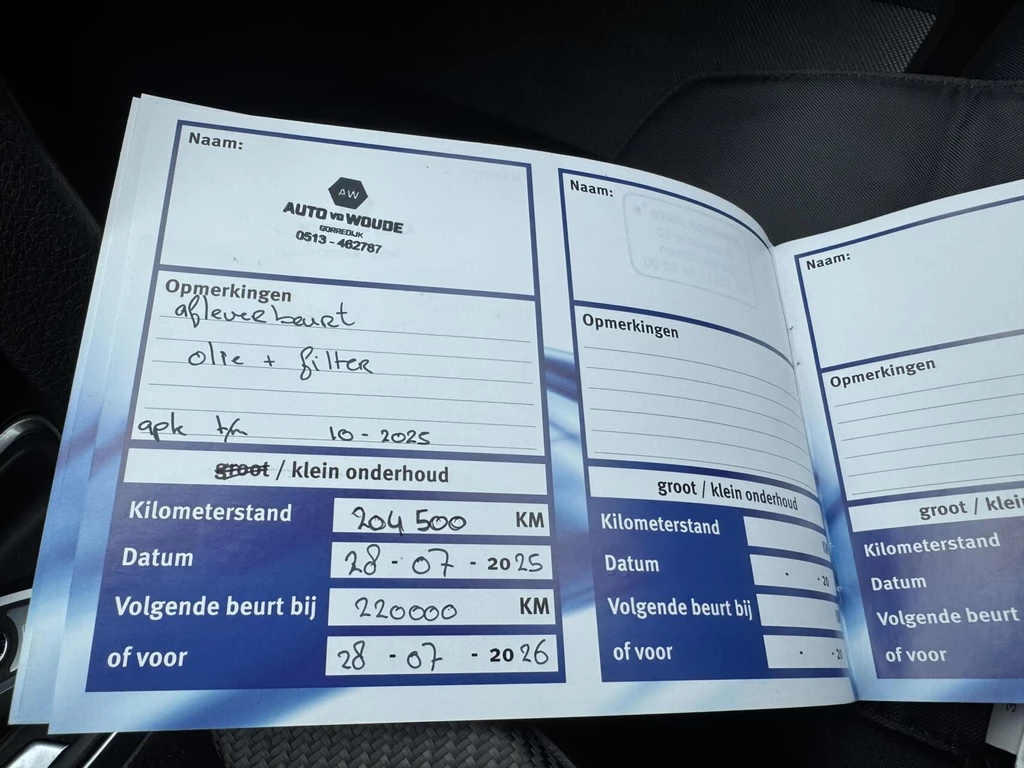 Naam:
AW
AUTO VD WOUDE
GORREDIJK
0513 - 462767
Opmerkingen
afleverbeurt
olie + filter
apk t/m 10 - 2025
groot / klein onderhoud
Kilometerstand 204 500 KM
Datum 28 - 07 - 2025
Volgende beurt bij 220000 KM
of voor 28 - 07 - 2026
Naam:
Opmerkingen
groot / klein onderhoud
Kilometerstand
Datum - - 20
Volgende beurt bij
of voor - - 20
Naam:
Opmerkingen
groot / klein
Kilometerstand
Datum
Volgende beurt
of voor